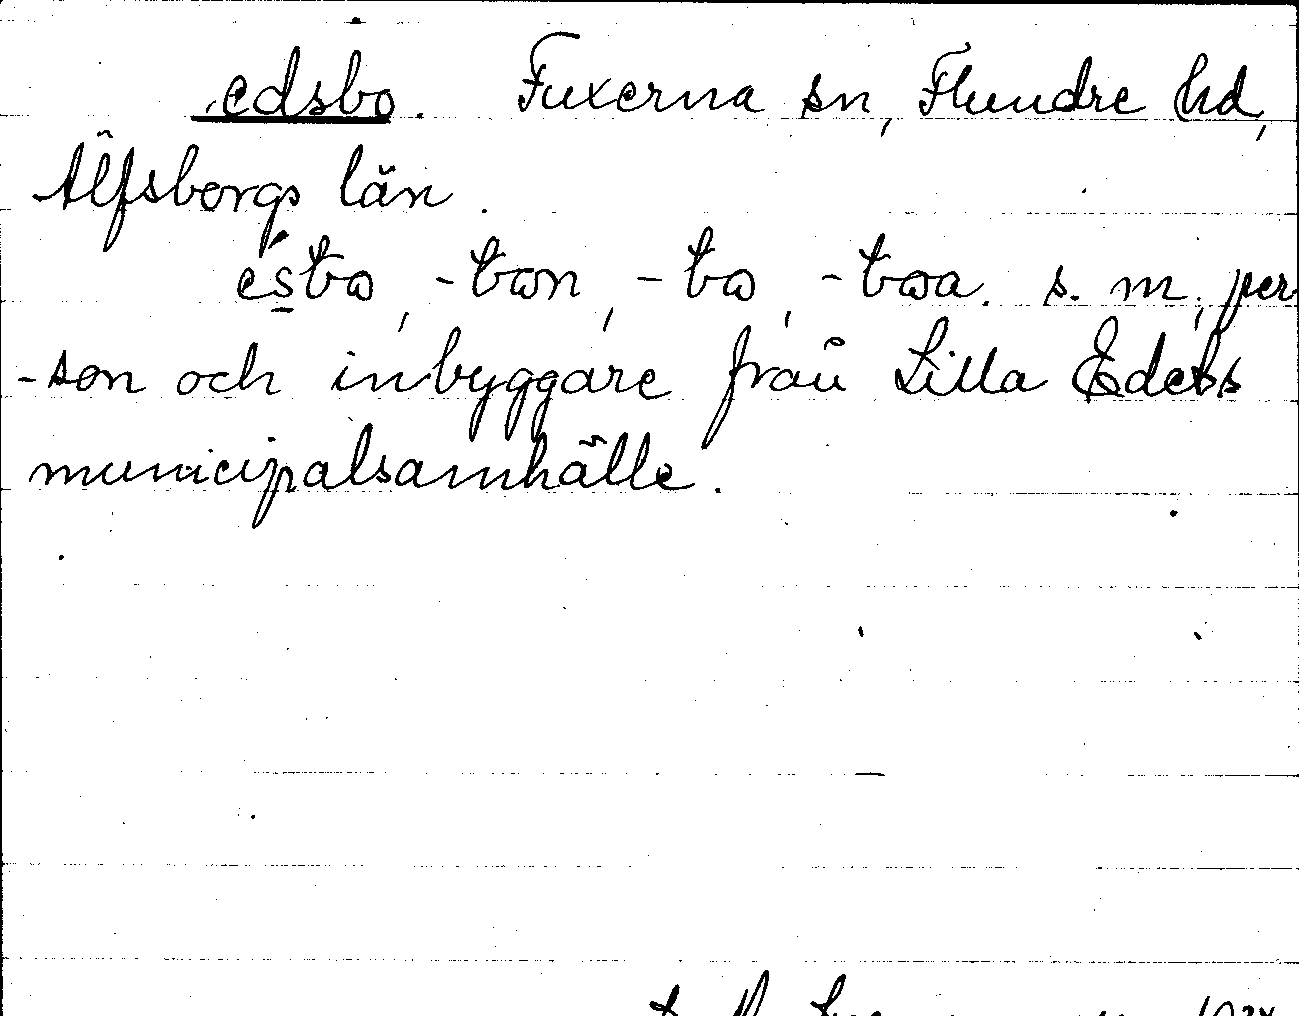 edsbo. Fuxerna sn, Flundre hd,
Älfsborgs län.
ésbo, -bon, -bo, -boa. s. m; per-
-son och inbyggare från Lilla Edets
municipalsamhälle.